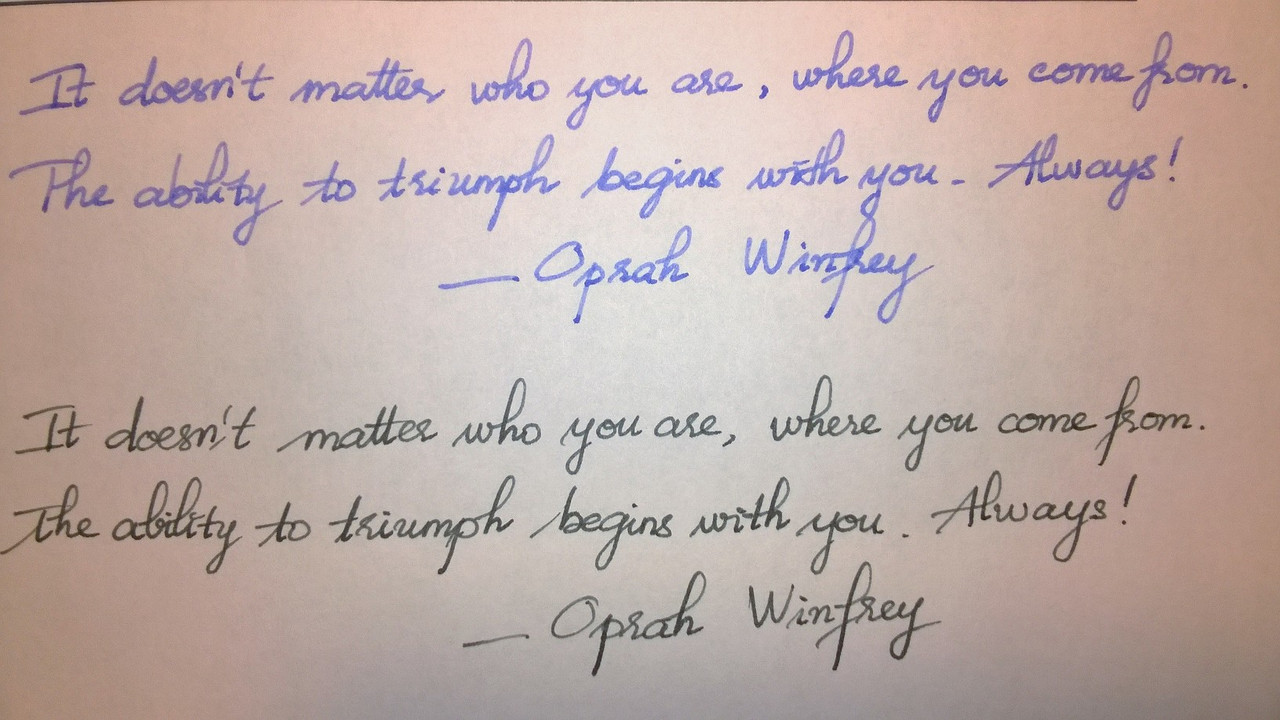 It doesn't matter who you are, where you come from.
The ability to triumph begins with you. Always!
— Oprah Winfrey
It doesn't matter who you are, where you come from.
The ability to triumph begins with you. Always!
— Oprah Winfrey